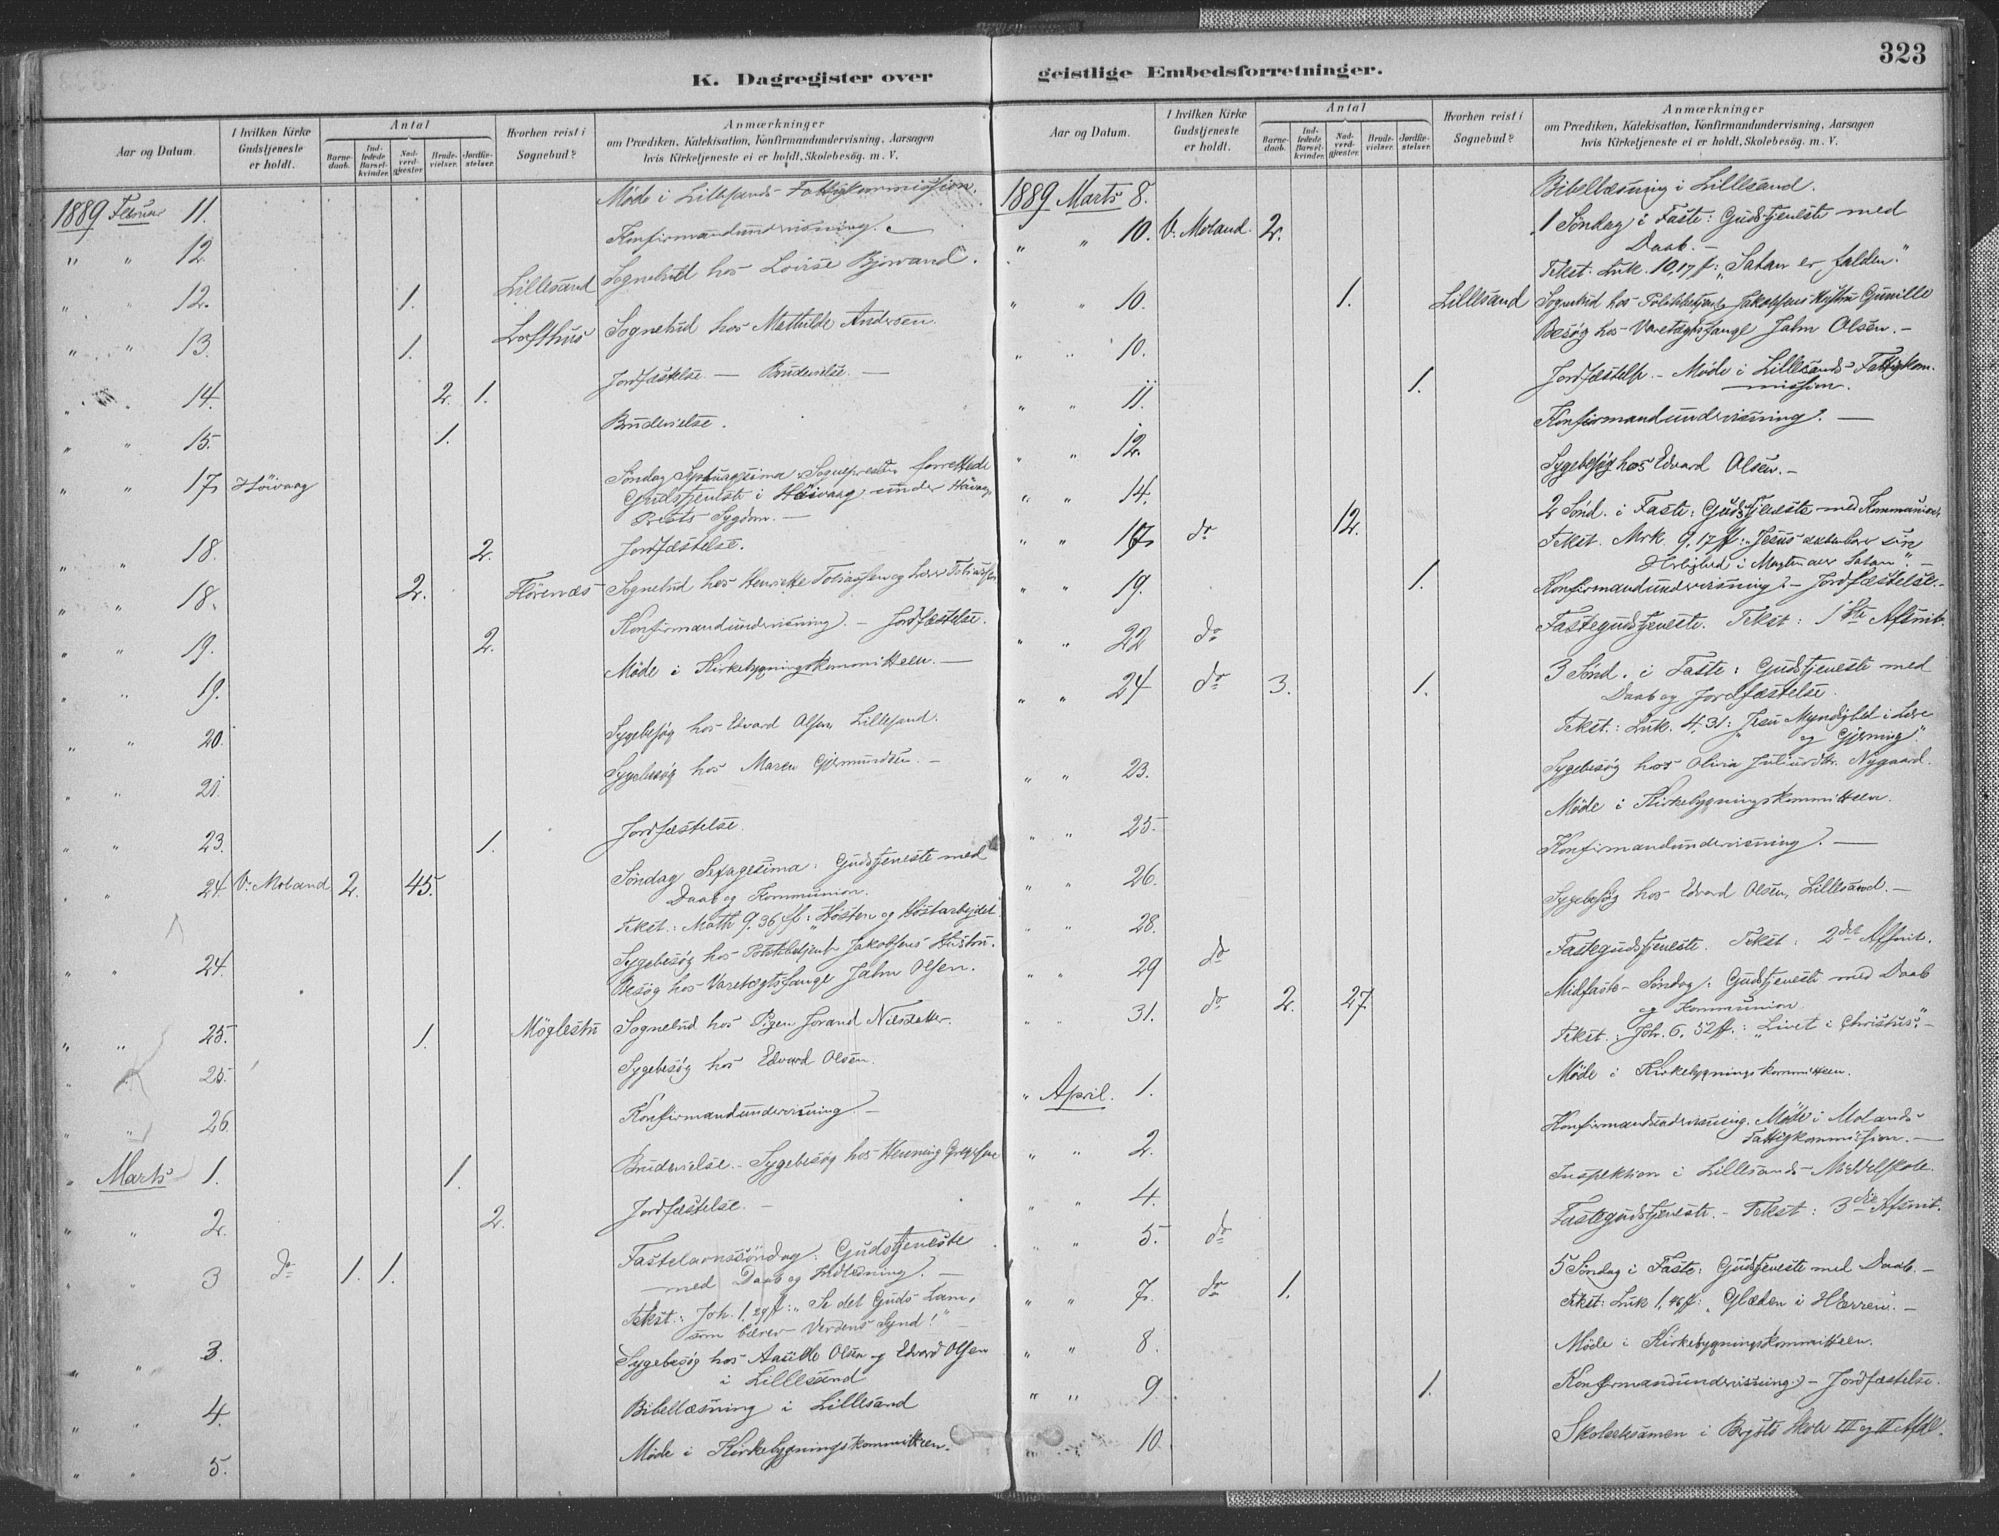 323
K. Dagregister over
Aar og Datum.
I hvilken Kirke Gudstjeneste er holdt.
Antal
Barnedaab.
Indledede Barselkvinder.
Nadverdgjester.
Brudevielser.
Jordfæstelser.
Hvorhen reist i Sognebud?
Anmærkninger
om Prædiken, Katekisation, Konfirmandundervisning, Aarsagen
hvis Kirketjeneste ei er holdt, Skolebesög. m. V.
1889 Februar 11. Möde i Lillesands Fattigkommission.
" " 12. Konfirmandundervisning.
" " 12. 1. Lillesand Sognebud hos Lovise Bjorvand.
" " 13. 1. Lofthus Sognebud hos Mathilde Andersen.
" " 14. 2. 1. Jordfæstelse. — Brudevielse. —
" " 15. 1. Brudevielse.
" " 17. Höivaag Söndag Septuagesima. Sognepresten forrettede
Gudstjeneste i Höivaag under Höivaags
Prests Sygdom. —
" " 18. 2. Jordfæstelse.
" " 18. 2. Sognebud hos Henriette Tobiassen og
" " 19. 2. Konfirmandundervisning. — Jordfæstelse.
" " 19. Möde i Kirkebygningskommitteen. —
" " 20. Sygebesög hos Edvard Olsen, Lillesand.
" " 21. Sygebesög hos Maren Gjermundsen. —
" " 23. 1. Jordfæstelse.
" " 24. V. Moland 2. 45. Söndag Sexagesima: Gudstjeneste med
Daab og Kommunion.
Tekst: Math 9.36 ff: "Hösten og Höstarbejdet"
" " 24. Sygebesög hos Politibetjent Jakobsens Hustru.
Besög hos Varetægtsfange Jahn Olsen.
" " 25. 1. Möglestu Sognebud hos Pigen Jorand Nilsdatter.
" " 25. Sygebesög hos Edvard Olsen.
" " 26. Konfirmandundervisning. —
" Marts 1. 1. Brudevielse. — Sygebesög hos Henning
" " 2. 2. Jordfæstelse. —
" " 3. do 1. 1. Fastelavnssöndag: Gudstjeneste
med Daab og Indledning. —
Tekst: Joh. 1.29 ff: "Se det Guds Lam,
som bærer Verdens Synd!" —
" " 3. Sygebesög hos Olsen og Edvard Olsen
i Lillesand
" " 4. Bibellæsning i Lillesand
" " 5. Möde i Kirkebygningskommitteen.
geistlige Embedsforretninger.
Aar og Datum.
I hvilken Kirke Gudstjeneste er holdt.
Antal
Barnedaab.
Indledede Barselkvinder.
Nadverdgjester.
Brudevielser.
Jordfæstelser.
Hvorhen reist i Sognebud?
Anmærkninger
om Prædiken, Katekisation, Konfirmandundervisning, Aarsagen
hvis Kirketjeneste ei er holdt, Skolebesög. m. V.
1889 Marts 8. Bibellæsning i Lillesand.
" " 10. V. Moland. 2. 1 Söndag i Faste: Gudstjeneste med
Daab. —
Tekst: Luk. 10,17 ff: "Satan er falden."
" " 10. 1. Lillesand Sognebud hos Politibetjent Jakobsens Hustru Gunille
" " 10. Besög hos Varetægtsfange Jahn Olsen. —
" " 11. 1. Jordfæstelse. — Möde i Lillesands Fattigkom-
mission.
" " 12. Konfirmandundervisning. —
" " 14. Sygebesög hos Edvard Olsen. —
" " 17. do 12. 2 Sönd. i Faste: Gudstjeneste med Kommunion.
Tekst. Mrk. 9,17 ff: "Jesus aabenbarer sin
Herlighed i Magten over Satan". —
" " 19. 1. Konfirmandundervisning. — Jordfæstelse. —
" " 22 do Fastegudstjeneste. Tekst: 1ste Afsnit.
" " 24 do 3. 1. 3 Sönd. i Faste: Gudstjeneste med
Daab og Jordfæstelse.
Tekst: Luk. 4,31: "Jesu Myndighed i Lære
og Gjerning".
" " 23. Sygebesög hos Olivia Juliusdtr. Nygaard.
" " 25. Möde i Kirkebygningskommitteen.
" " 26. Konfirmandundervisning. —
" " 28. Sygebesög hos Edvard Olsen, Lillesand. —
" " 29 do Fastegudstjeneste. Tekst: 2det Afsnit.
" " 31. do 2. 27. Midfaste-Söndag: Gudstjeneste med Daab
og Kommunion.
Tekst: Joh. 6, 52 ff: "Livet i Christus". —
" April. 1. Möde i Kirkebygningskommitteen.
" " 2. Konfirmandundervisning. Möde i Molands
Fattigkommission. —
" " 4. Inspektion i Lillesands Middelskole.
" " 5. do Fastegudstjeneste. — Tekst: 3die Afsnit.
" " 7. do 1. 5 Söndag i Faste: Gudstjeneste med Daab. —
Tekst: Luk 1,46 ff: "Glæden i Herren". —
" " 8. Möde i Kirkebygningskommitteen.
" " 9. 1. Konfirmandundervisning. — Jordfæstelse.
" " 10. Skoleeksamen i Skole III og II Afdl.